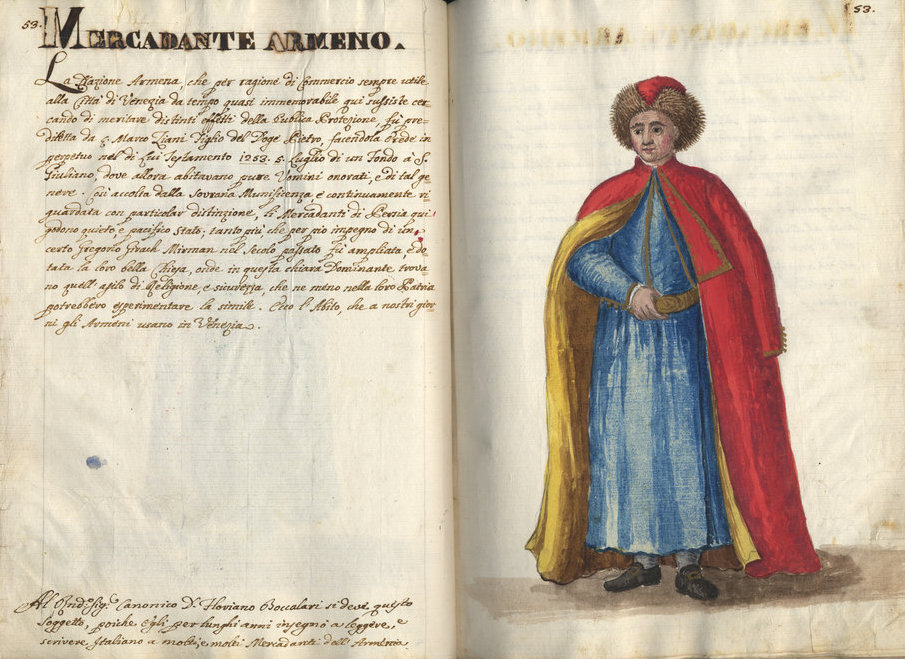 53.
MERCADANTE ARMENO.
La Nazione Armena, che per ragione di Commercio sempre utile
alla Città di Venezia da tempo quasi immemorabile qui sussiste cer
cando di meritare distinti effetti della Publica Protezione, fù pre-
diletta da S. Marco Ziani Figlio del Doge Pietro, facendola Erede in
perpetuo nel di Lui Testamento 1253. 5. Luglio di un Fondo à S.
Giuliano, dove allora abitavano pure Uomini onorati, e di tal ge-
nere. Fù accolta dalla Sovrana Munificenza e continuamente ri
guardata con particolar distinzione, li Mercadanti di Persia qui
godono quieto, e pacifico Stato; tanto più, che per pio impegno di un
certo Gregorio Mirman nel Secolo passato fù ampliata, e do
tata la loro bella Chiesa, onde in questa chiara Dominante, trova
no quell' asilo di Religione, e sicurezza, che ne meno nella loro Patria
potrebbero esperimentare la simile. Ecco l' Abito, che a nostri gior
ni gli Armeni usano in Venezia.
Al Sig.r Canonico D.n Floviano Boccalari si deve questo
Soggetto, poiche egli per lunghi anni insegnò a leggere, e
scrivere Italiano a molti, e molti Mercadanti dell' Armenia.
53.